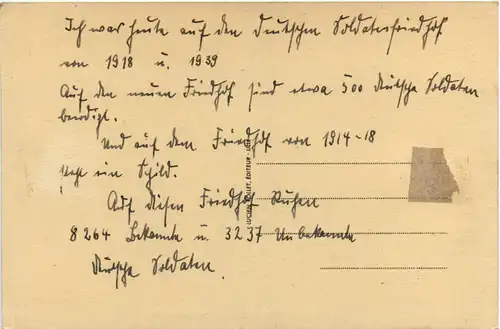 Ich war heute auf den Deutschen Soldatenfriedhof
von 1918 u. 1939
Auf den neuen Friedhof sind etwa 500 deutsche Soldaten
beerdigt.
Und auf dem Friedhof von 1914-18
steht ein Schild.
Auf diesen Friedhof Ruhen
8264 Bekannte u. 3237 Unbekannte
deutsche Soldaten.
LUCIEN POLLET, ÉDITEUR -